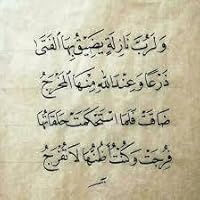 وَلَرُبَّ نَازِلَةٍ يَضِيقُ بِهَا الفَتَى
ذَرْعًا وَعِنْدَ اللهِ مِنْهَا المَخْرَجُ
ضَاقَتْ فَلَمَّا اسْتَحْكَمَتْ حَلَقَاتُهَا
فُرِجَتْ وَكُنْتُ أَظُنُّهَا لَا تُفْرَجُ